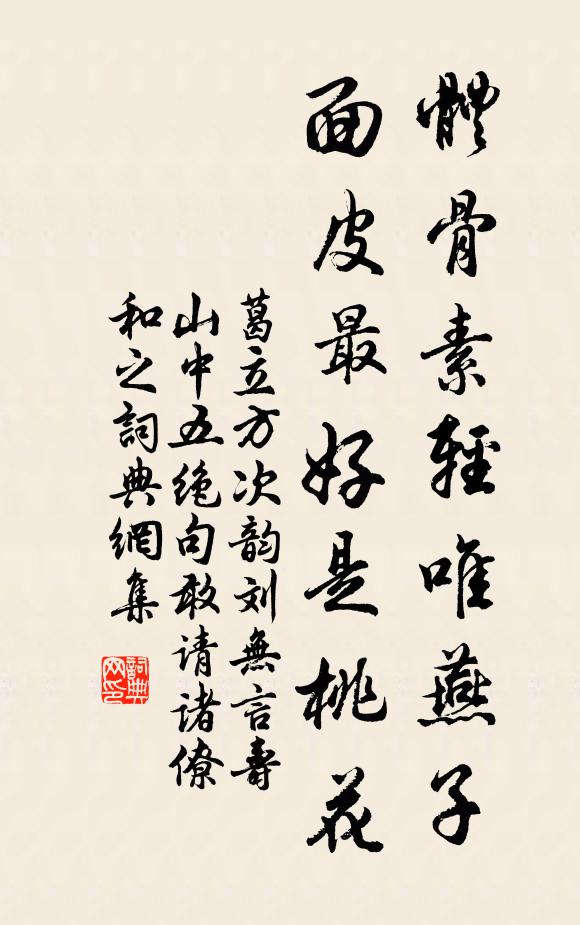 體骨素輕唯燕子
面皮最好是桃花
葛立方次韵刘無言壽
山中五绝句敢请诸僚
和之詞典網集
詞典
网印